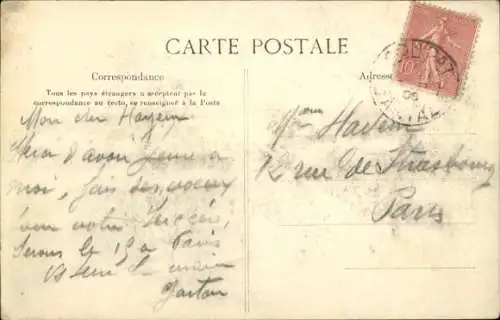 CARTE POSTALE
Correspondance
Tous les pays étrangers n'acceptent pas la
correspondance au recto, se renseigner à la Poste
Adresse
Mon cher
Merci d'avoir pensé à
moi, fais des vœux
pour votre succès,
Serons le 19 à Paris
la main
Gaston
12 rue de Strasbourg
Paris
10